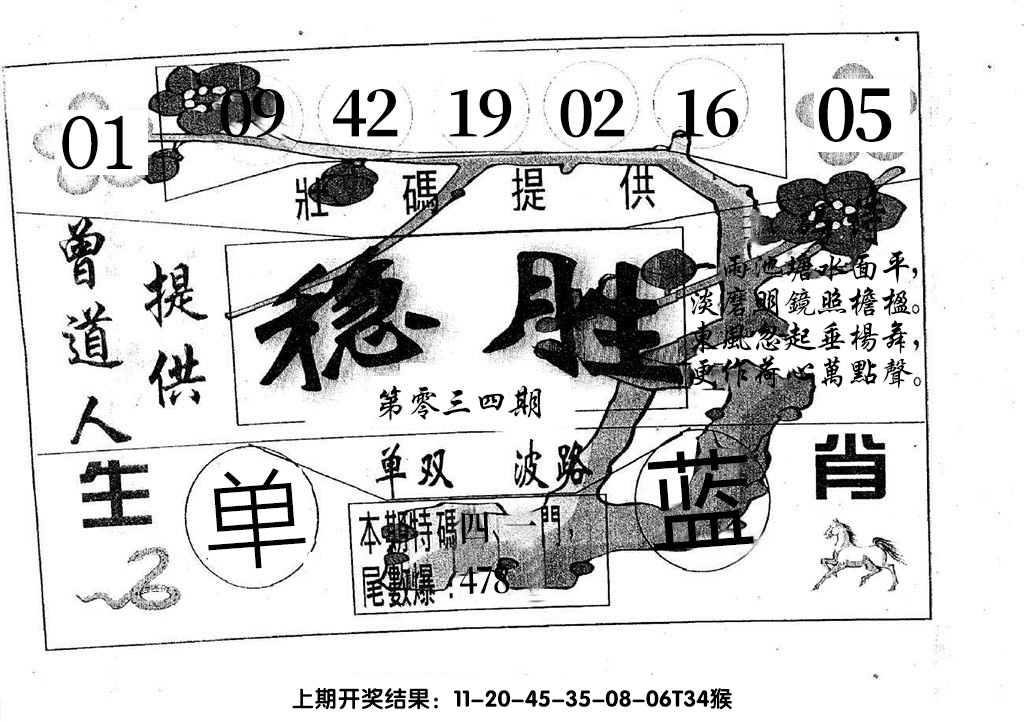 01 09 42 19 02 16 05
壯碼提供
曾道人
提供
稳胜
第零三四期
雨池塘水面平，
淡磨明鏡照檐楹。
東風忽起垂楊舞，
更作荷心萬點聲。
生肖
单双 波路
单
蓝
本期特碼四、一門，
尾數爆：478
上期开奖结果：11-20-45-35-08-06T34猴